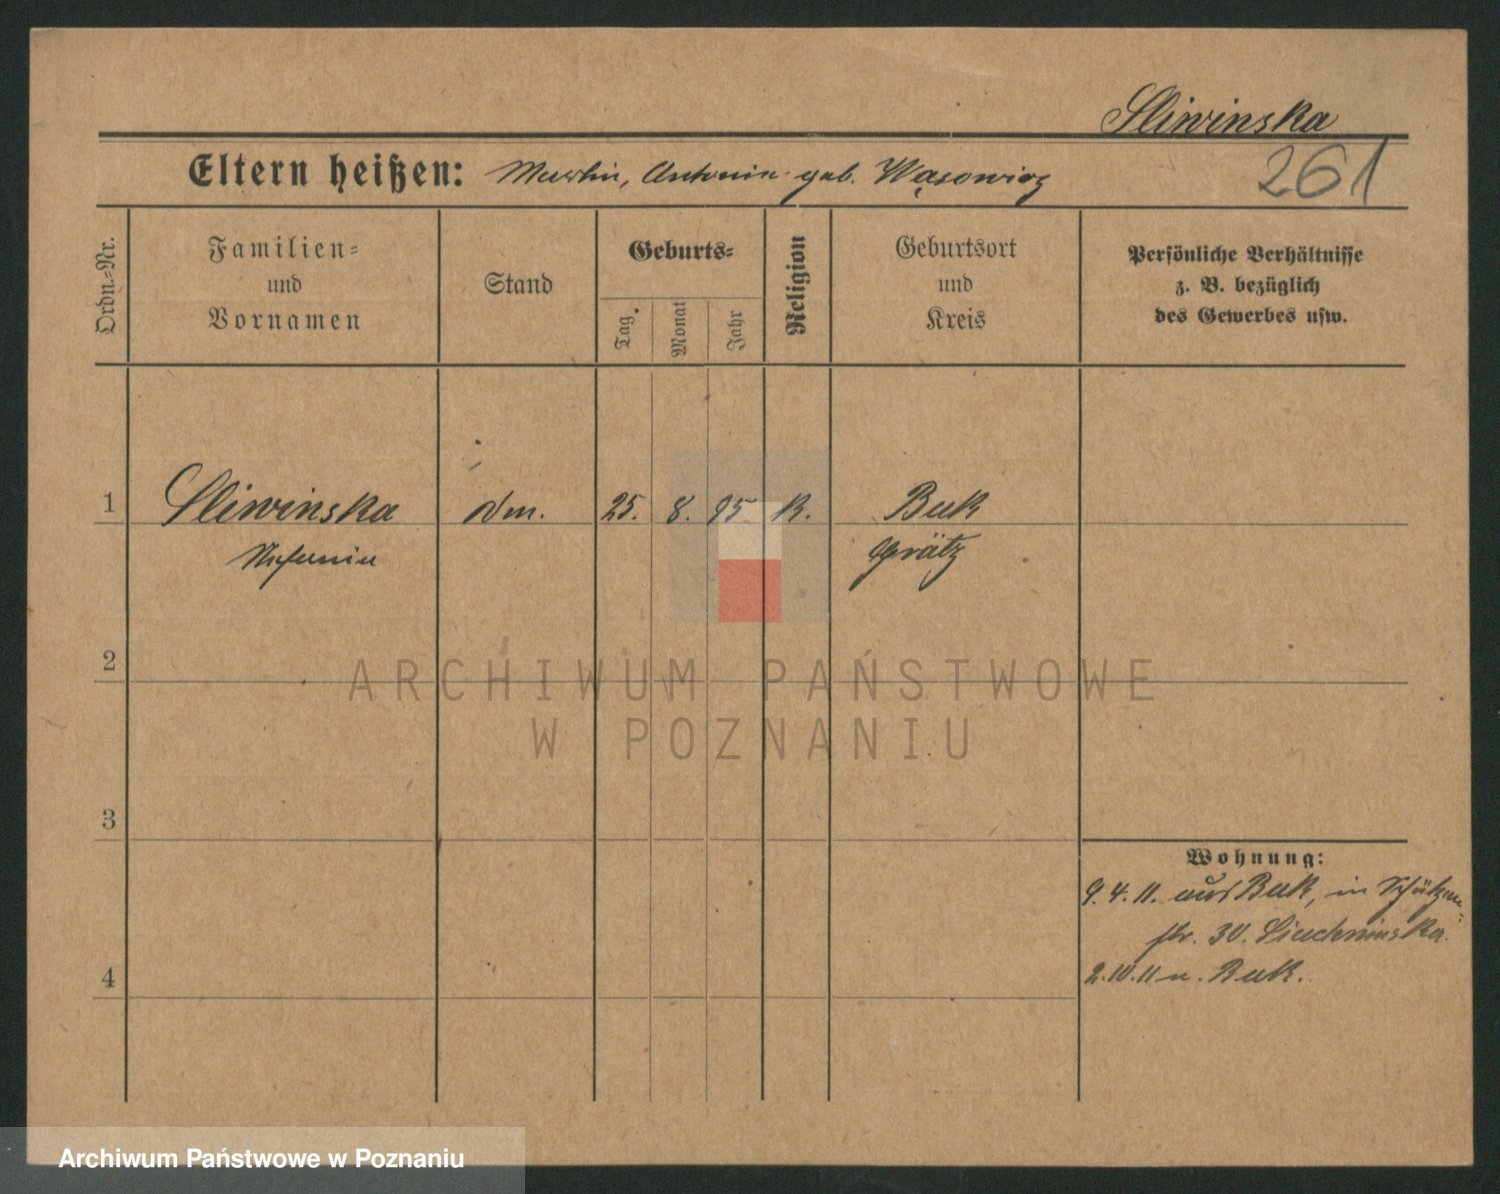 Sliwinska
Eltern heißen: Martin, Antonie geb. Wąsowicz 261
Ordn.-Nr.
Familien-
und
Vornamen
Stand
Geburts-
Tag.
Monat
Jahr
Religion
Geburtsort
und
Kreis
Persönliche Verhältnisse
z. B. bezüglich
des Gewerbes usw.
1 Sliwinska 25. 8. 95. K. Buk
Grätz
2
3
4
Wohnung:
9. 4. 11. aus Buk, in Schützen-
str. 30.
2.10.11 n. Buk.
ARCHIWUM PAŃSTWOWE
W POZNANIU
Archiwum Państwowe w Poznaniu